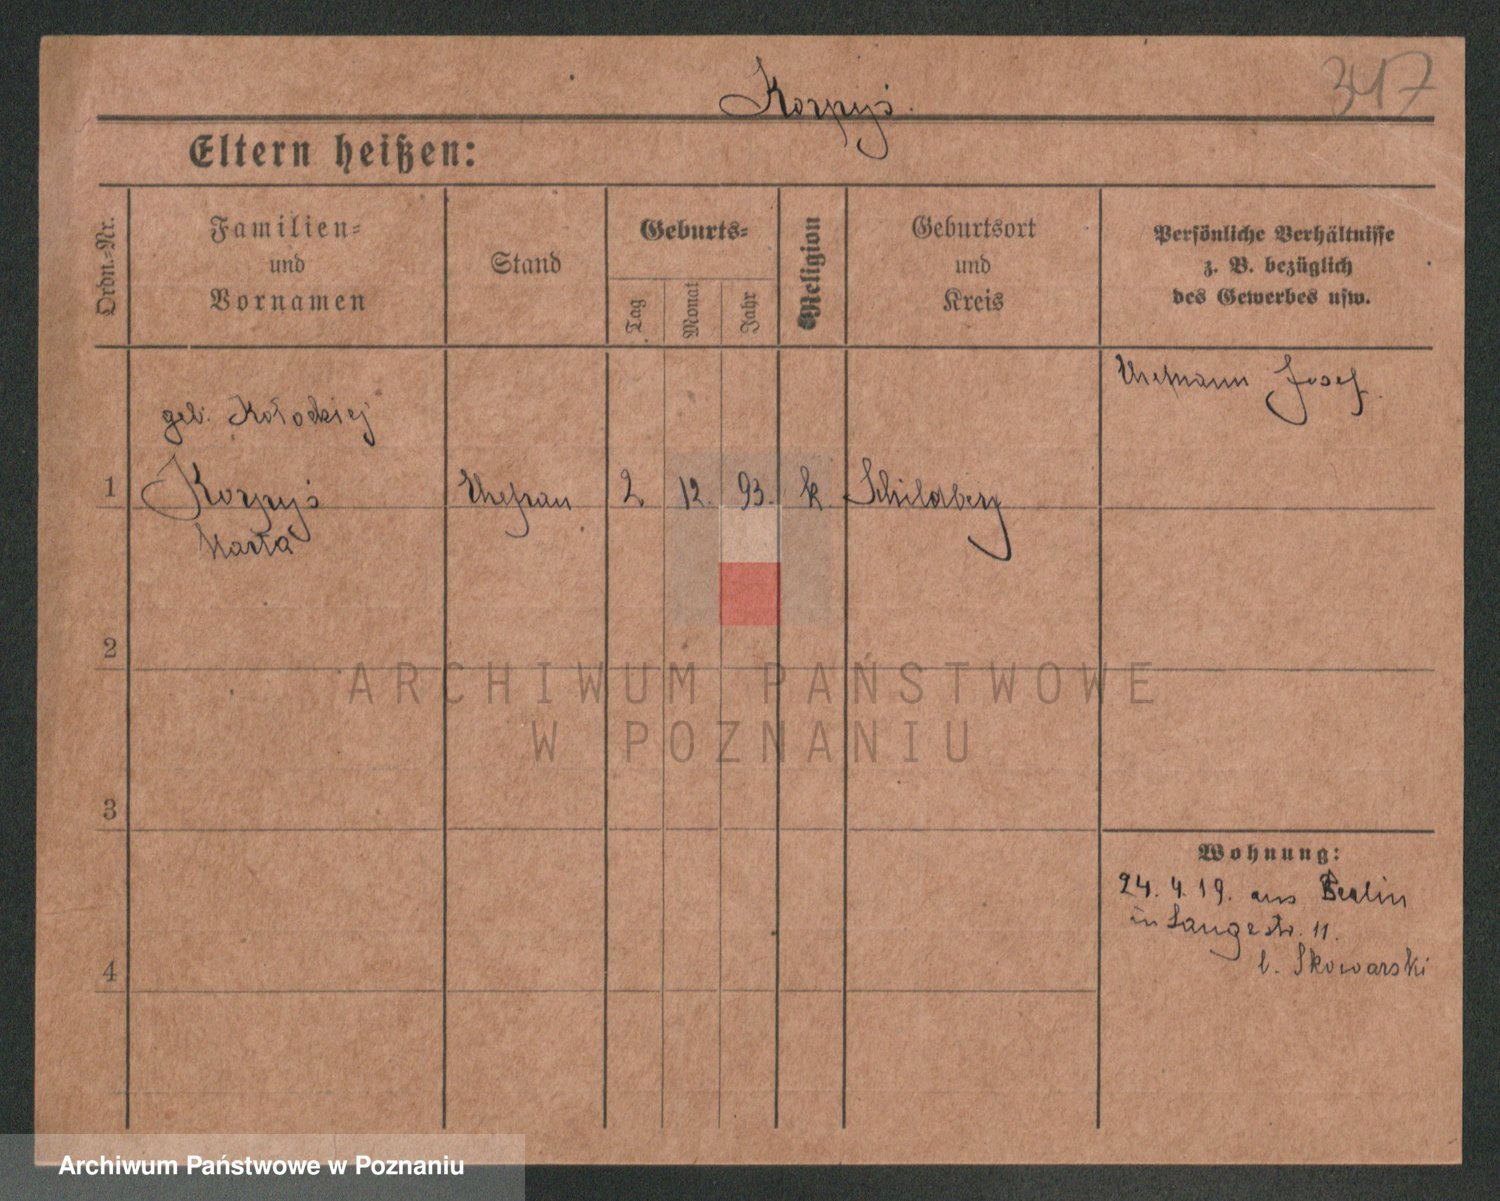 Korpyś.
347
Eltern heißen:
Ordn.-Nr.
Familien-
und
Vornamen
Stand
Geburts-
Tag
Monat
Jahr
Religion
Geburtsort
und
Kreis
Persönliche Verhältnisse
z. B. bezüglich
des Gewerbes usw.
Ehemann Josef.
geb.
1 Korpyś Ehefrau 2 12. 93. k. Schildberg
2
ARCHIWUM PAŃSTWOWE
W POZNANIU
3
Wohnung:
24.4.19. aus Berlin
in Langestr. 11.
b. Skowarski
4
Archiwum Państwowe w Poznaniu